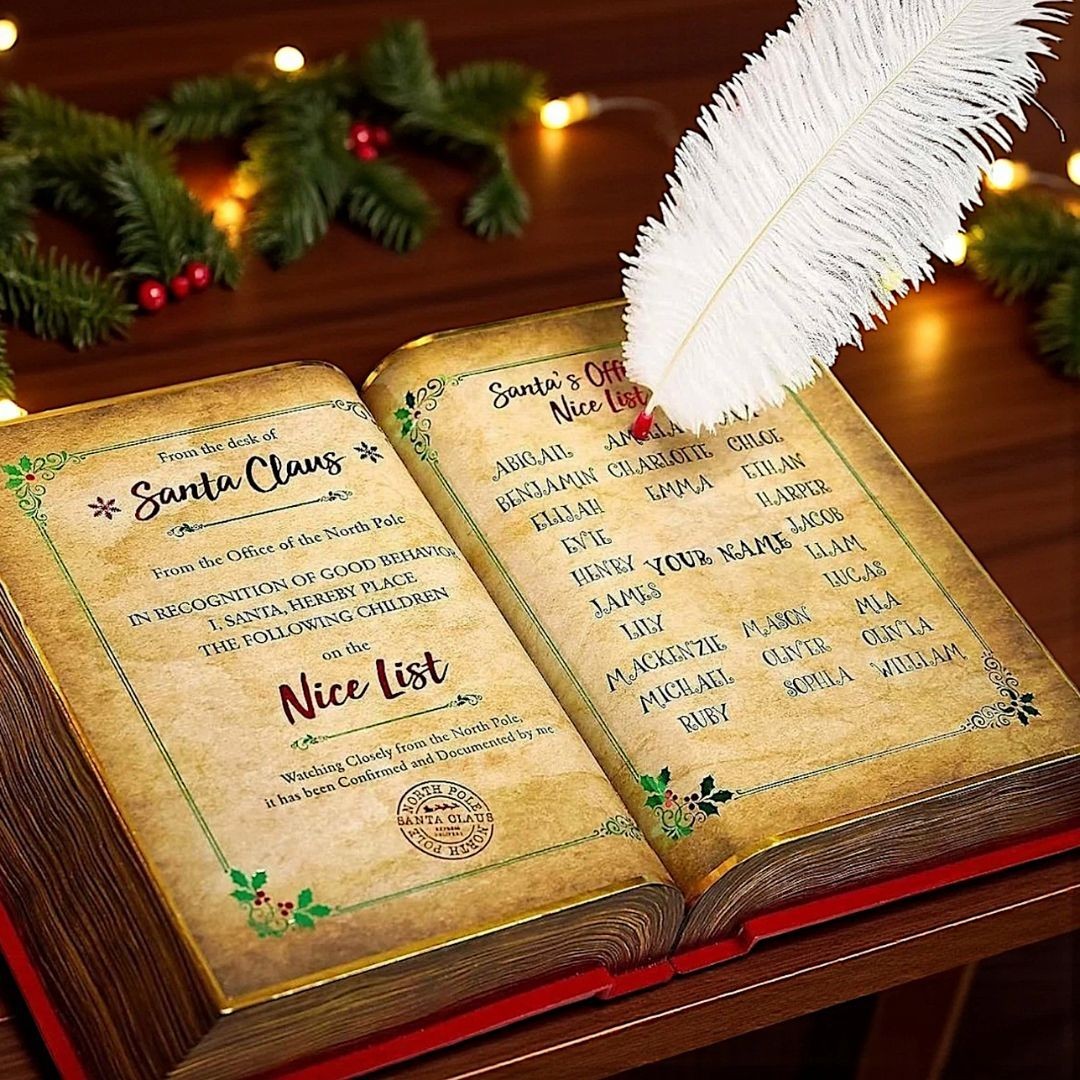 From the desk of
Santa Claus
From the Office of the North Pole
IN RECOGNITION OF GOOD BEHAVIOR
I, SANTA, HEREBY PLACE
THE FOLLOWING CHILDREN
on the
Nice List
Watching Closely from the North Pole,
it has been Confirmed and Documented by me
NORTH POLE
SANTA CLAUS
NORTH POLE
Santa's
Nice List
ABIGAIL
BENJAMIN CHARLOTTE CHLOE
ELIJAH EMMA ETHAN
EVIE HARPER
HENRY YOUR NAME JACOB
JAMES LIAM
LILY LUCAS
MACKENZIE MASON MIA
MICHAEL OLIVER OLIVIA
RUBY SOPHIA WILLIAM